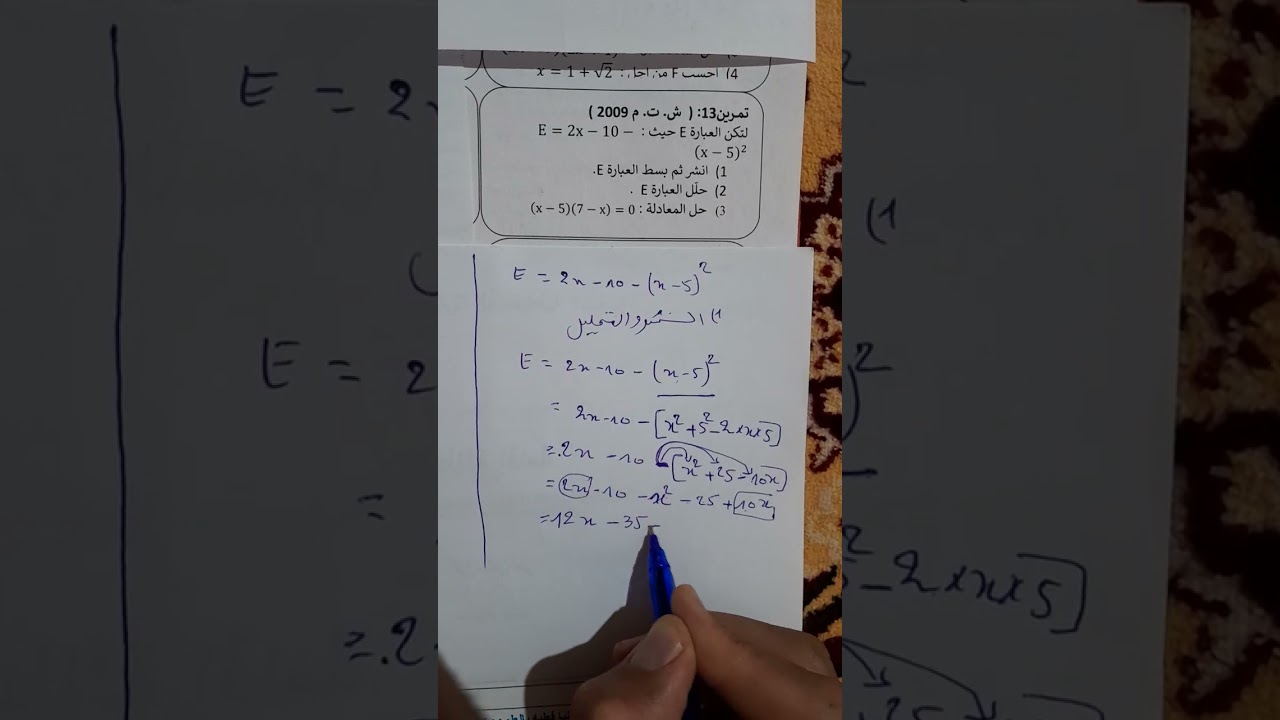 4) احسب F من اجل : x = 1 + √2
تمرين13: ( ش. ت. م 2009 )
لتكن العبارة E حيث : E = 2x − 10 −
(x − 5)²
1) انشر ثم بسط العبارة E.
2) حلّل العبارة E .
3) حل المعادلة : (x − 5)(7 − x) = 0
E = 2x − 10 − (x − 5)²
1) النشر و التحليل
E = 2x − 10 − (x − 5)²
= 2x − 10 − [x² + 5² − 2×x×5]
= 2x − 10 − [x² + 25 − 10x]
= 2x − 10 − x² − 25 + 10x
= 12x − 35 −